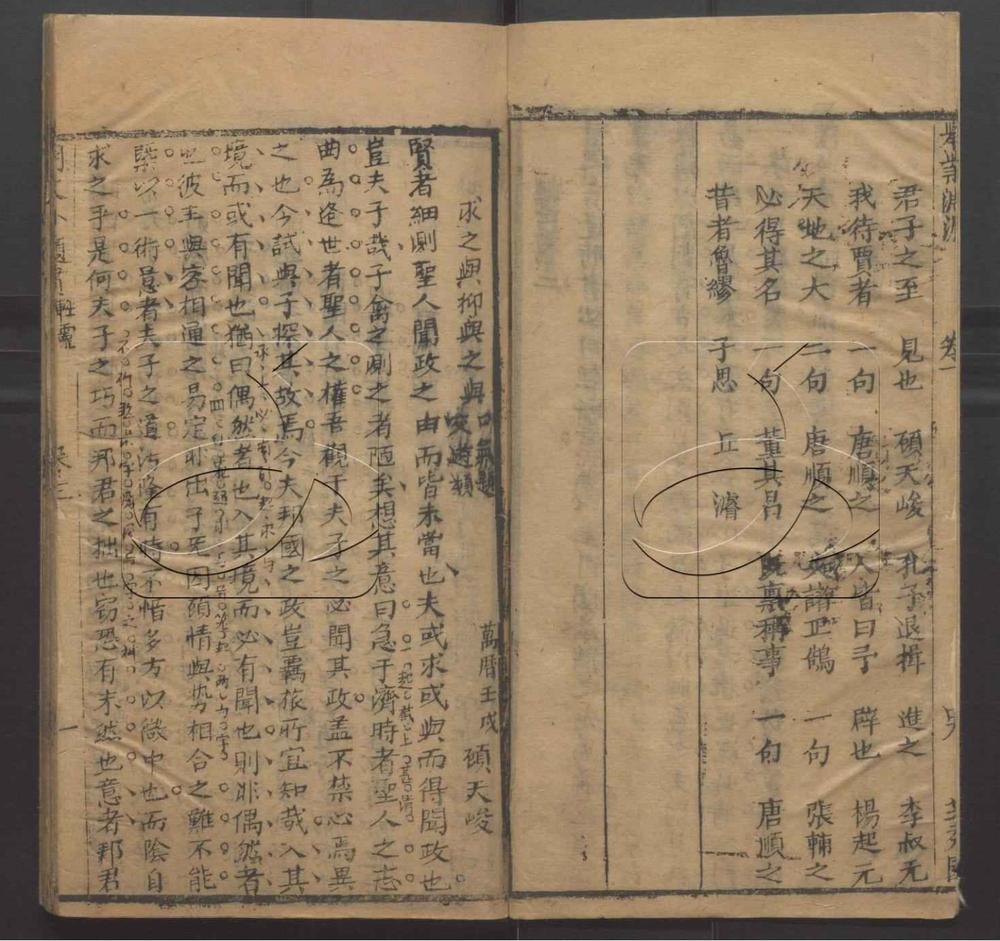 君子之至 見也 碩天峻 孔子退揖 進之 李叔元
我待賈者 一句 唐順之 人皆曰予 辟也 楊起元
天地之大 二句 唐順之 失諸正鵠 一句 張輔之
必得其名 一句 董其昌 既稟稱事 一句 唐順之
昔者魯繆 子思 丘濬
求之與抑與之與 口氣題 交遊類 萬曆壬戌 碩天峻
賢者細測聖人聞政之由而皆未當也夫或求或與而得聞政也
豈夫子哉子禽之測之者陋矣想其意曰急于濟時者聖人之志
曲為逢世者聖人之權吾觀于夫子之必聞其政孟不禁心焉異
之也今試與子探其故焉今夫邦國之政豈羈旅所宜知哉入其
境而或有聞也猶曰偶然者也入其境而必有聞也則非偶然者
也彼主與客相通之易定於出乎无因頭情與勢相合之難不能
槩以一術意者夫子之道汚隆有時不惜多方以欲中也而陰自
求之乎是何夫子之巧而邦君之拙也窃恐有未然也意者邦君
一